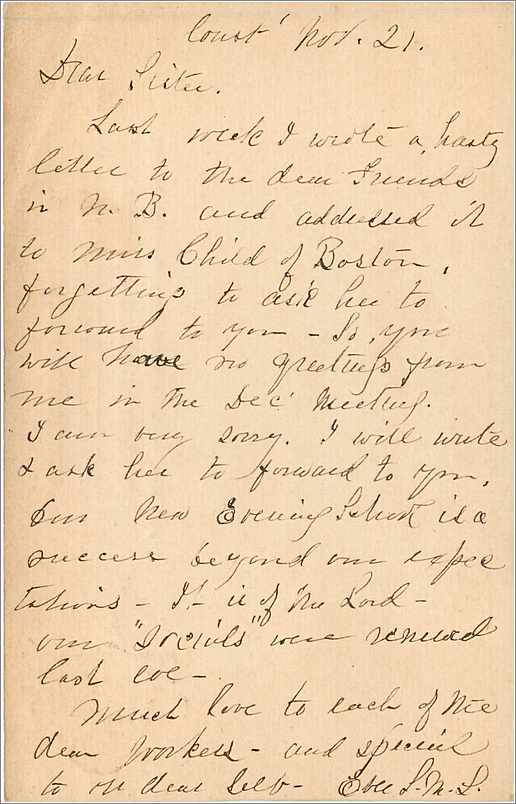 Const' Nov. 21.
Dear Sister.
Last week I wrote a hasty
letter to the dear Friends
in N. B. and addressed it
to Miss Child of Boston,
forgetting to ask her to
forward to you - So, you
will have no greetings from
me in the Dec' Meeting.
I am very sorry. I will write
& ask her to forward to you.
Our New Evening School is a
success beyond our expec
tations - It is of the Lord -
our "Socials" were renewed
last eve -
Much love to each of the
dear workers - and special
to dear Self - Ever